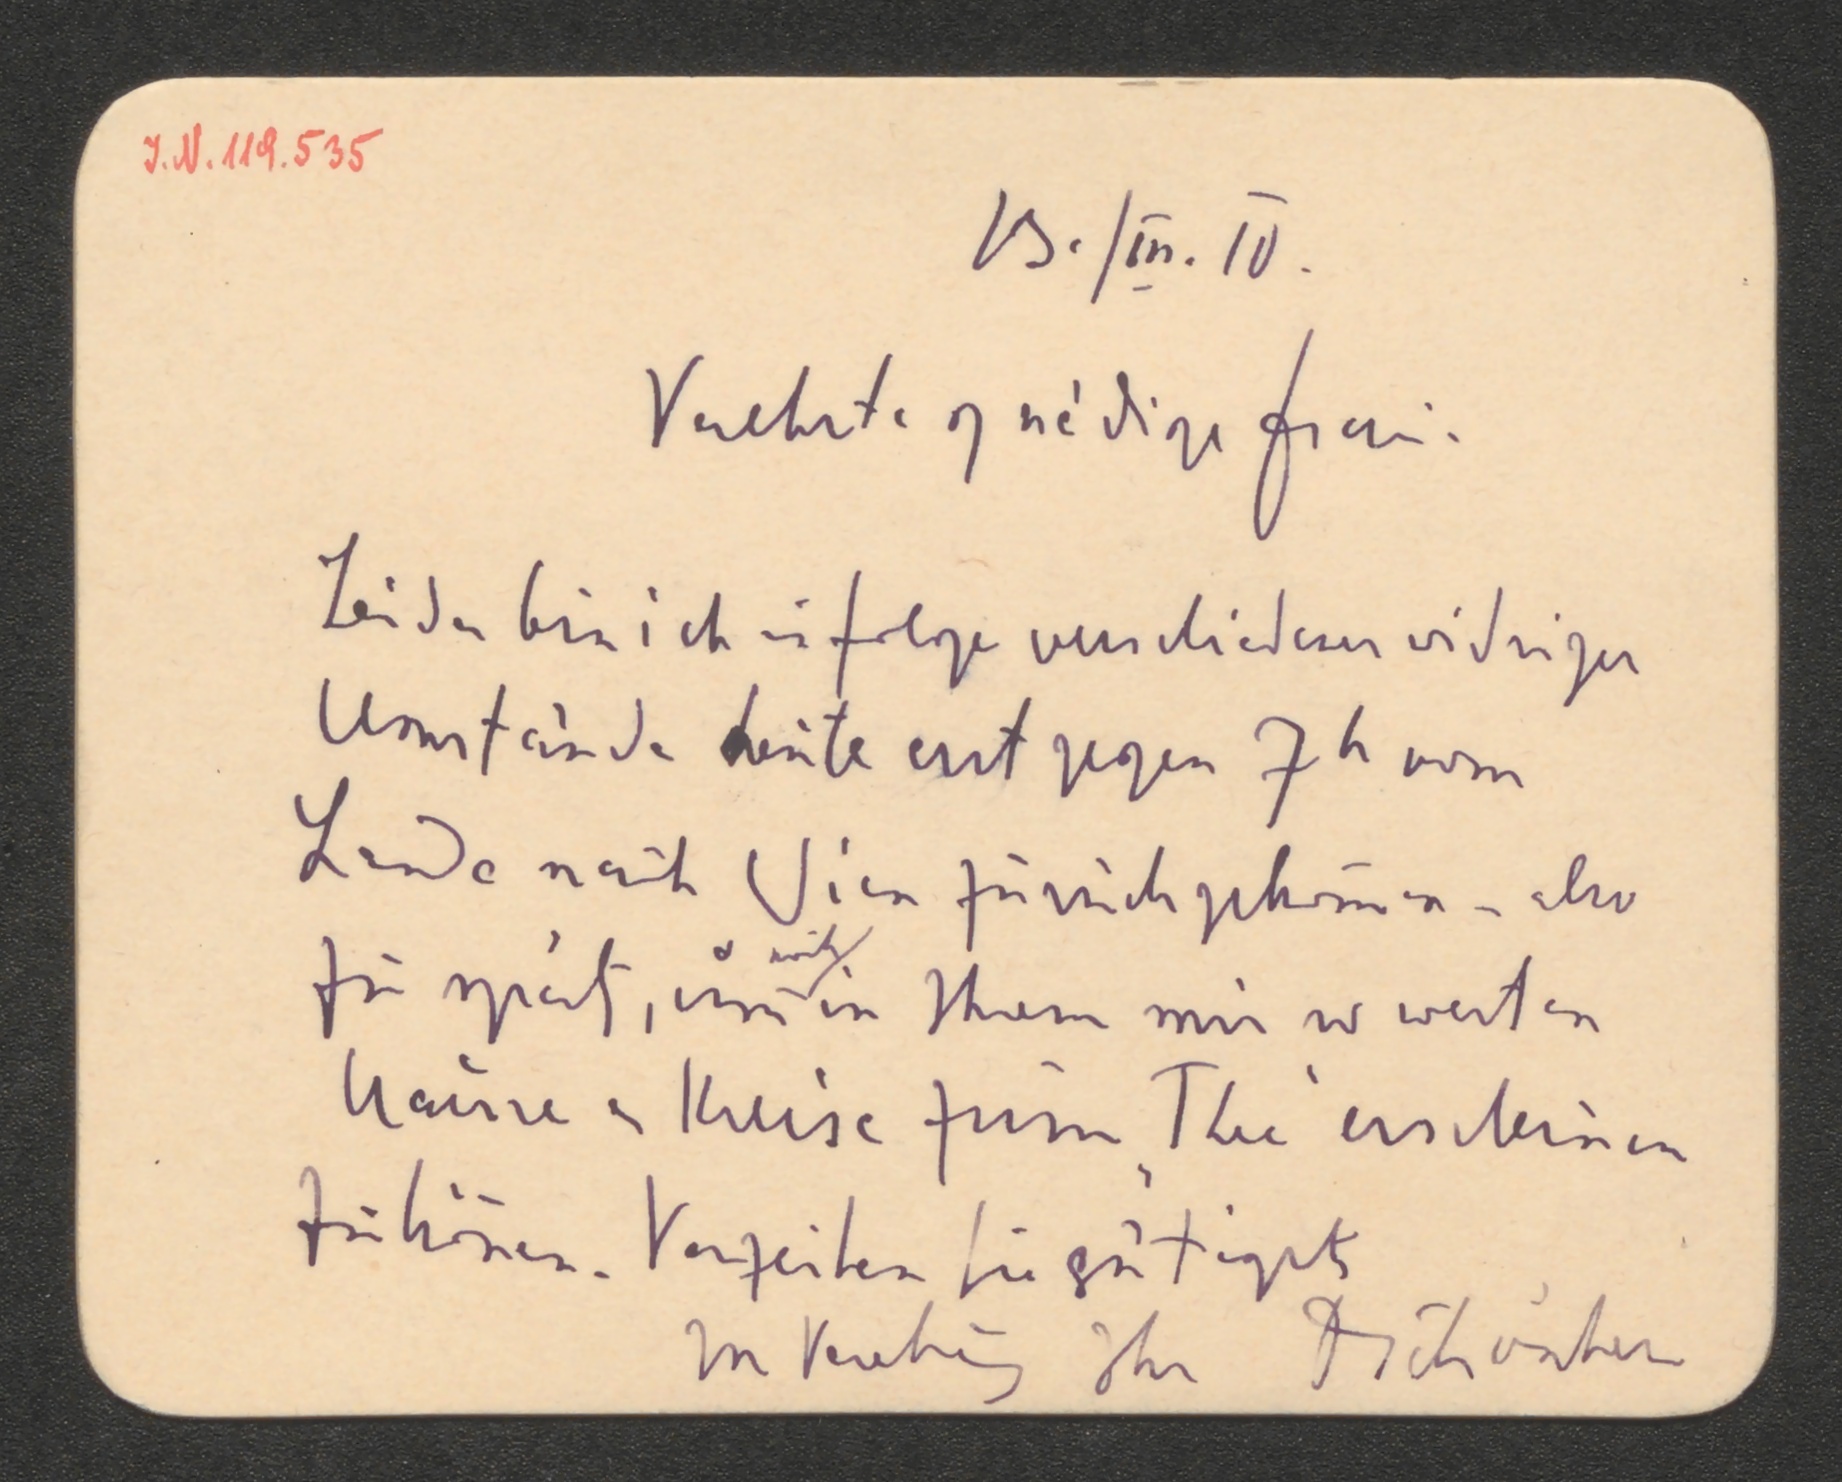 I.N. 119.535
13./III. 10.
Verehrte gnädige Frau.
Leider bin ich infolge verschiedener widriger
Umstände heute erst gegen 7h vom
Lande nach Wien zurückgekom̄en – also
zu spät, um noch in Ihrem mir so werten
Hause u Kreise zum „Thee“ erscheinen
zu kön̄en. Verzeihen Sie gütigst
In Verehrung Ihr